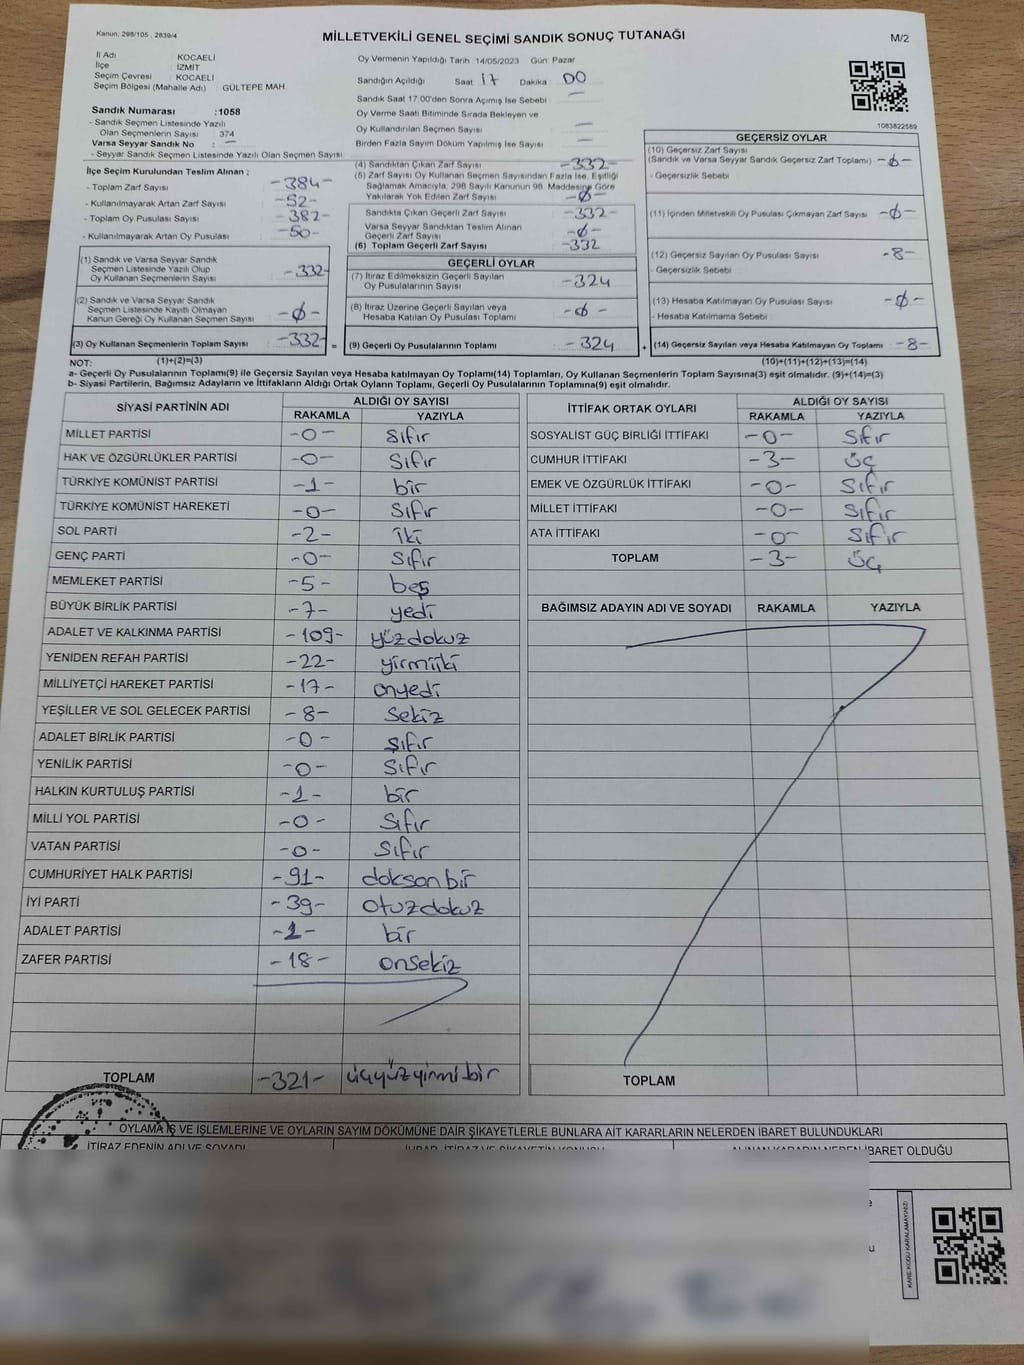 Kanun: 298/105 , 2839/4
MİLLETVEKİLİ GENEL SEÇİMİ SANDIK SONUÇ TUTANAĞI
M/2
İl Adı : KOCAELİ
İlçe : İZMİT
Seçim Çevresi : KOCAELİ
Seçim Bölgesi (Mahalle Adı) : GÜLTEPE MAH.
Sandık Numarası :1058
- Sandık Seçmen Listesinde Yazılı
Olan Seçmenlerin Sayısı : 374
Varsa Seyyar Sandık No : —
- Seyyar Sandık Seçmen Listesinde Yazılı Olan Seçmen Sayısı
Oy Vermenin Yapıldığı Tarih : 14/05/2023 Gün: Pazar
Sandığın Açıldığı Saat 17 Dakika 00
Sandık Saat 17:00'den Sonra Açılmış İse Sebebi : —
Oy Verme Saati Bitiminde Sırada Bekleyen ve
Oy Kullandırılan Seçmen Sayısı : —
Birden Fazla Sayım Döküm Yapılmış İse Sayısı : —
1083822589
İlçe Seçim Kurulundan Teslim Alınan ;
- Toplam Zarf Sayısı : -384-
- Kullanılmayarak Artan Zarf Sayısı : -52-
- Toplam Oy Pusulası Sayısı : -382-
- Kullanılmayarak Artan Oy Pusulası : -50-
(1) Sandık ve Varsa Seyyar Sandık
Seçmen Listesinde Yazılı Olup
Oy Kullanan Seçmenlerin Sayısı : -332-
(2) Sandık ve Varsa Seyyar Sandık
Seçmen Listesinde Kayıtlı Olmayan
Kanun Gereği Oy Kullanan Seçmen Sayısı : -0-
(3) Oy Kullanan Seçmenlerin Toplam Sayısı : -332-
(4) Sandıktan Çıkan Zarf Sayısı : -332-
(5) Zarf Sayısı Oy Kullanan Seçmen Sayısından Fazla İse, Eşitliği
Sağlamak Amacıyla, 298 Sayılı Kanunun 98. Maddesine Göre
Yakılarak Yok Edilen Zarf Sayısı : -0-
Sandıkta Çıkan Geçerli Zarf Sayısı : -332-
Varsa Seyyar Sandıktan Teslim Alınan
Geçerli Zarf Sayısı : -0-
(6) Toplam Geçerli Zarf Sayısı : -332
GEÇERLİ OYLAR
(7) İtiraz Edilmeksizin Geçerli Sayılan
Oy Pusulalarının Sayısı : -324
(8) İtiraz Üzerine Geçerli Sayılan veya
Hesaba Katılan Oy Pusulası Toplamı : -0-
= (9) Geçerli Oy Pusulalarının Toplamı : -324
GEÇERSİZ OYLAR
(10) Geçersiz Zarf Sayısı
(Sandık ve Varsa Seyyar Sandık Geçersiz Zarf Toplamı) -0-
- Geçersizlik Sebebi :
(11) İçinden Milletvekili Oy Pusulası Çıkmayan Zarf Sayısı : -0-
(12) Geçersiz Sayılan Oy Pusulası Sayısı : -8-
- Geçersizlik Sebebi :
(13) Hesaba Katılmayan Oy Pusulası Sayısı : -0-
- Hesaba Katılmama Sebebi :
+ (14) Geçersiz Sayılan veya Hesaba Katılmayan Oy Toplamı : -8-
NOT: (1)+(2)=(3) (10)+(11)+(12)+(13)=(14)
a- Geçerli Oy Pusulalarının Toplamı(9) ile Geçersiz Sayılan veya Hesaba katılmayan Oy Toplamı(14) Toplamları, Oy Kullanan Seçmenlerin Toplam Sayısına(3) eşit olmalıdır. (9)+(14)=(3)
b- Siyasi Partilerin, Bağımsız Adayların ve İttifakların Aldığı Ortak Oyların Toplamı, Geçerli Oy Pusulalarının Toplamına(9) eşit olmalıdır.
SİYASİ PARTİNİN ADI ALDIĞI OY SAYISI
RAKAMLA YAZIYLA
MİLLET PARTİSİ -0- Sıfır
HAK VE ÖZGÜRLÜKLER PARTİSİ -0- Sıfır
TÜRKİYE KOMÜNİST PARTİSİ -1- bir
TÜRKİYE KOMÜNİST HAREKETİ -0- Sıfır
SOL PARTİ -2- iki
GENÇ PARTİ -0- Sıfır
MEMLEKET PARTİSİ -5- beş
BÜYÜK BİRLİK PARTİSİ -7- yedi
ADALET VE KALKINMA PARTİSİ -109- yüzdokuz
YENİDEN REFAH PARTİSİ -22- yirmiiki
MİLLİYETÇİ HAREKET PARTİSİ -17- onyedi
YEŞİLLER VE SOL GELECEK PARTİSİ -8- Sekiz
ADALET BİRLİK PARTİSİ -0- Sıfır
YENİLİK PARTİSİ -0- Sıfır
HALKIN KURTULUŞ PARTİSİ -1- bir
MİLLİ YOL PARTİSİ -0- Sıfır
VATAN PARTİSİ -0- Sıfır
CUMHURİYET HALK PARTİSİ -91- doksanbir
İYİ PARTİ -39- Otuzdokuz
ADALET PARTİSİ -1- bir
ZAFER PARTİSİ -18- onsekiz
TOPLAM -321- üçyüzyirmibir
İTTİFAK ORTAK OYLARI ALDIĞI OY SAYISI
RAKAMLA YAZIYLA
SOSYALİST GÜÇ BİRLİĞİ İTTİFAKI -0- Sıfır
CUMHUR İTTİFAKI -3- üç
EMEK VE ÖZGÜRLÜK İTTİFAKI -0- Sıfır
MİLLET İTTİFAKI -0- Sıfır
ATA İTTİFAKI -0- Sıfır
TOPLAM -3- üç
BAĞIMSIZ ADAYIN ADI VE SOYADI RAKAMLA YAZIYLA
TOPLAM
OYLAMA İŞ VE İŞLEMLERİNE VE OYLARIN SAYIM DÖKÜMÜNE DAİR ŞİKAYETLERLE BUNLARA AİT KARARLARIN NELERDEN İBARET BULUNDUKLARI
İTİRAZ EDENİN ADI VE SOYADI İHBAR, İTİRAZ VE ŞİKAYETİN KONUSU ALINAN KARARIN NEDEN İBARET OLDUĞU
KARE KODU KARALAMAYINIZ!